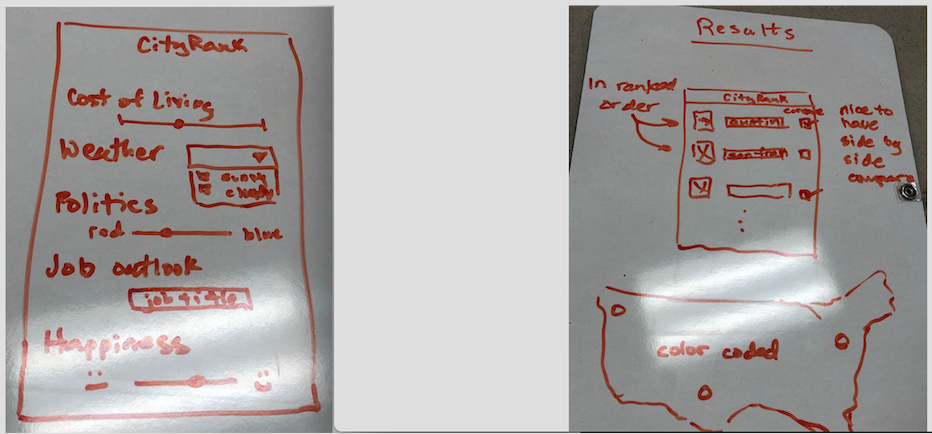 CityRank
Cost of Living
Weather
sunny
cloudy
Politics
red
blue
Job outlook
job title
Happiness
Results
In ranked
order
CityRank
compare
austin
san fran
nice to
have
side by
side
compare
color coded